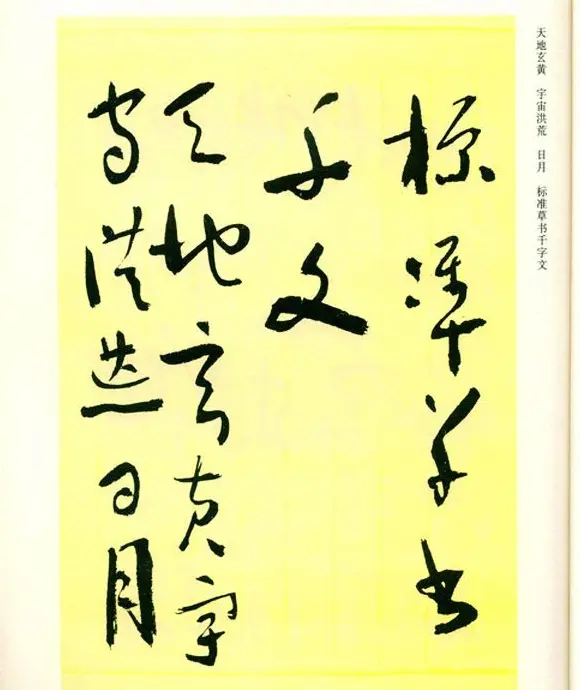 天地玄黄　宇宙洪荒　日月　标准草书千字文
標準草書
千文
天地玄黄宇
宙洪荒日月